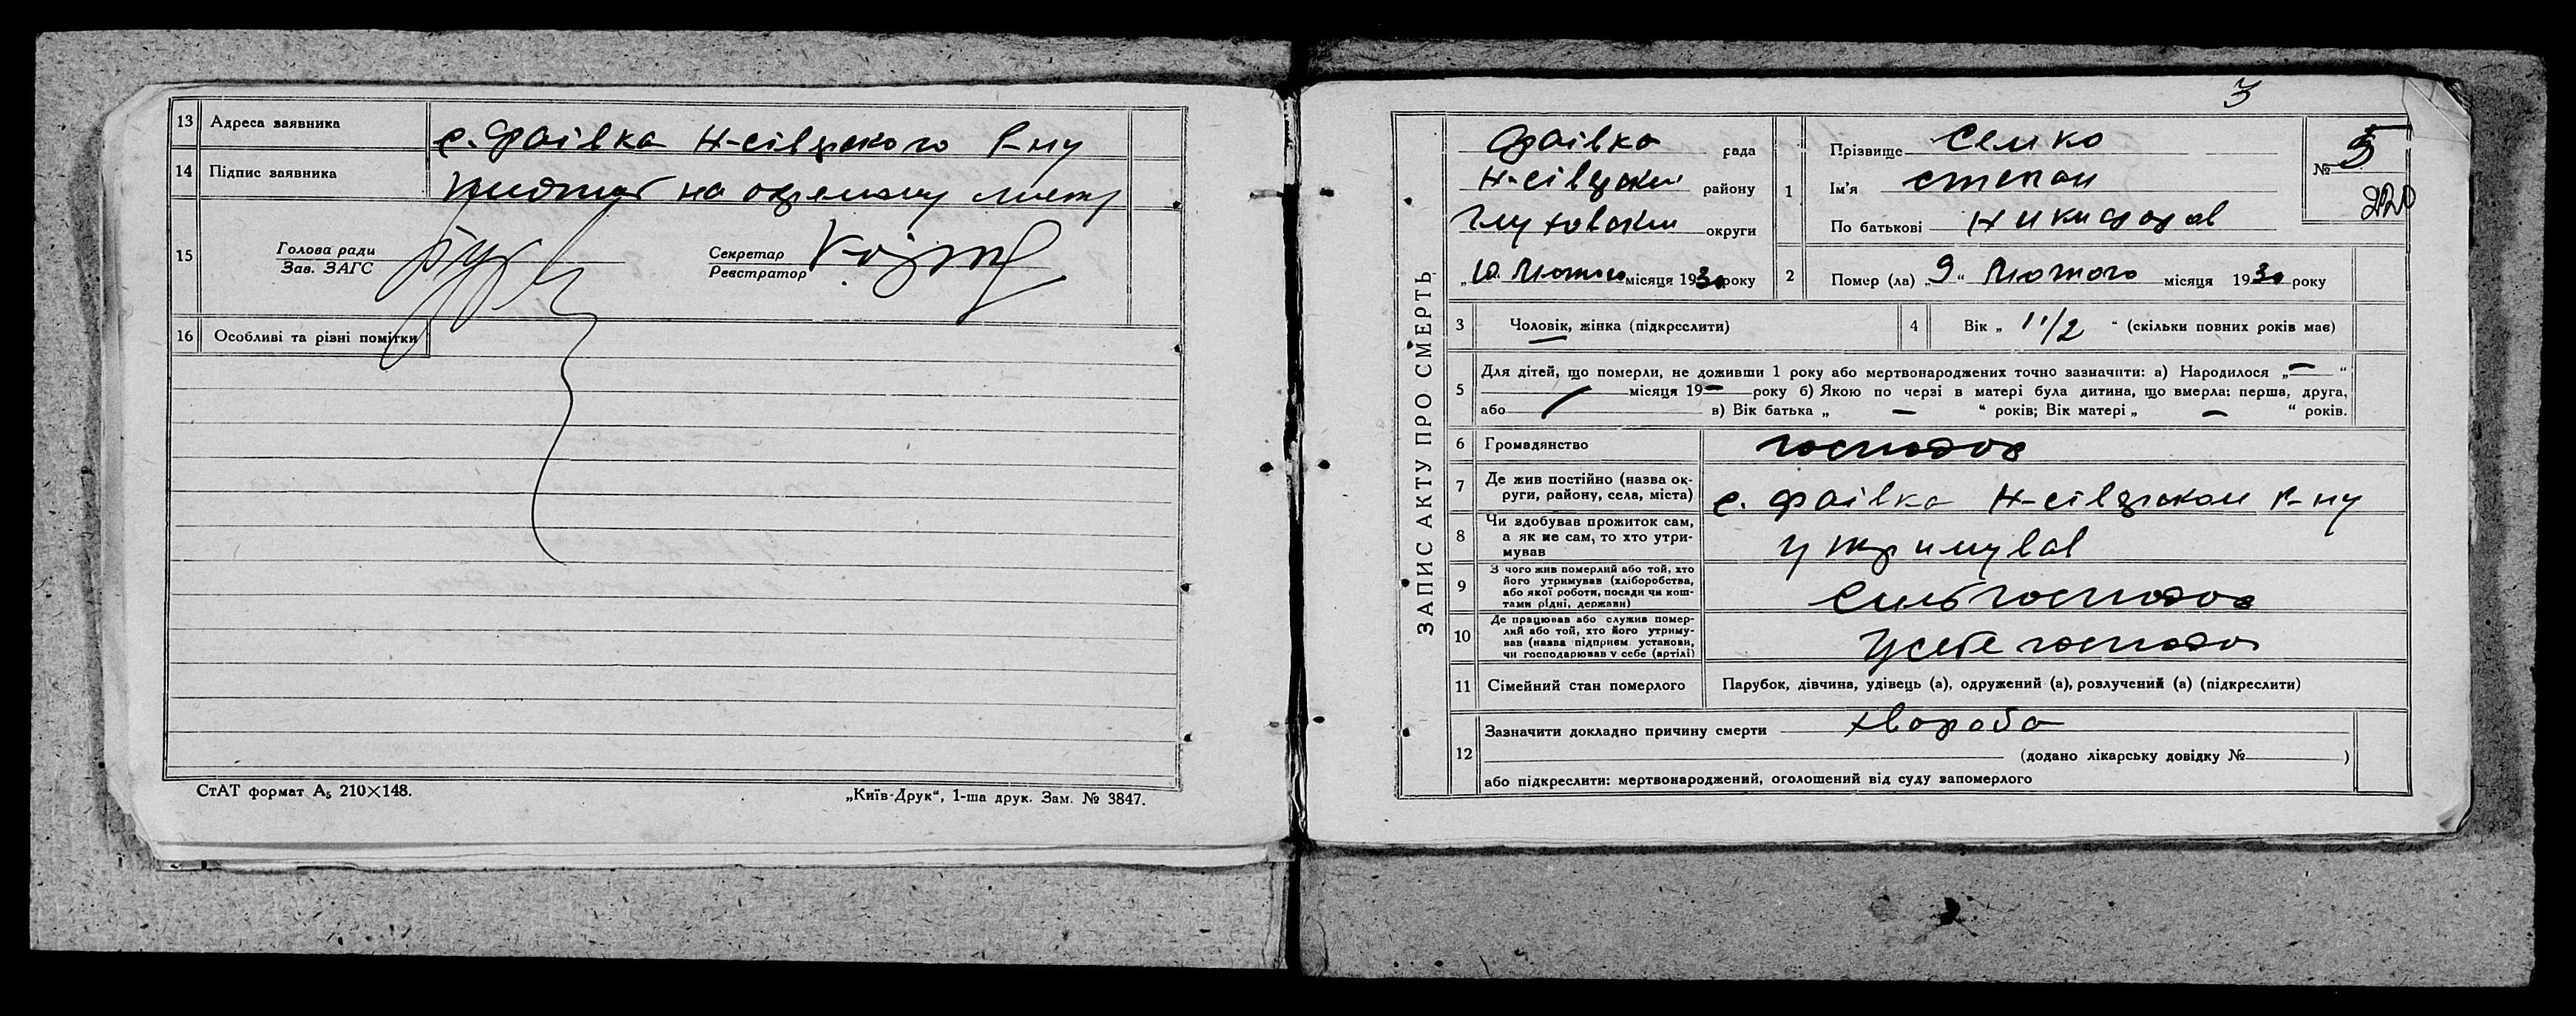 13 Адреса заявника с. Фаівка Н-сіверського Р-ну
14 Підпис заявника на окремому листу
15 Голова ради
Зав. ЗАГС
Секретар
Реєстратор
16 Особливі та різні помітки
СтАТ формат А₅ 210×148.
„Київ-Друк“, 1-ша друк. Зам. № 3847.
3
ЗАПИС АКТУ ПРО СМЕРТЬ
Фаівка рада
Н-сіверськи району
Глуховски округи
„10 Лютого місяця 1930 року
1 Прізвище Семко
Ім'я Степан
По батькові Никифоров
№ 5
220
2 Помер (ла) „9“ Лютого місяця 1930 року
3 Чоловік, жінка (підкреслити)
4 Вік „ 1 1/2 “ (скільки повних років має)
5 Для дітей, що померли, не доживши 1 року або мертвонароджених точно зазначити: а) Народилося „—“
місяця 19— року б) Якою по черзі в матері була дитина, що вмерла: перша, друга,
або в) Вік батька „ — “ років; Вік матері „ — “ років.
6 Громадянство господар
7 Де жив постійно (назва ок-
руги, району, села, міста) с. Фаівка Н-сіверском Р-ну
8 Чи здобував прожиток сам,
а як не сам, то хто утри-
мував утримував
9 З чого жив померлий або той, хто
його утримував (хліборобства,
або якої роботи, посади чи кош-
тами рідні, держави) Сильгосподар
10 Де працював або служив помер-
лий або той, хто його утриму-
вав (назва підприєм. установи,
чи господарював у себе (артілі) У себе господар
11 Сімейний стан померлого Парубок, дівчина, удівець (а), одружений (а), розлучений (а) (підкреслити)
12 Зазначити докладно причину смерти хвороба
(додано лікарську довідку № )
або підкреслити: мертвонароджений, оголошений від суду запомерлого